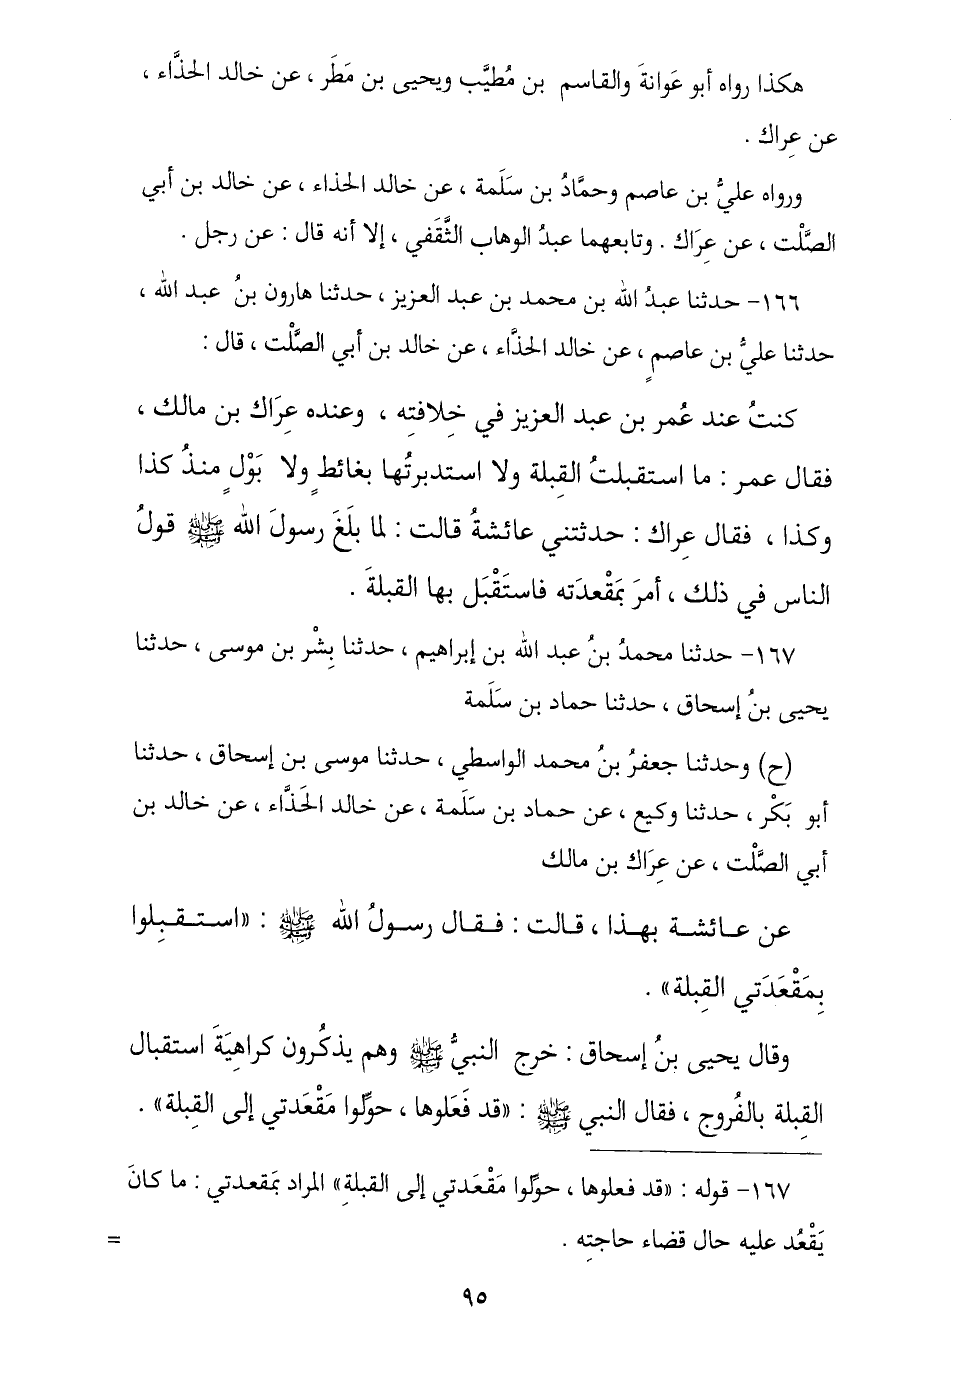 هكذا رواه أبو عَوانةَ والقاسم بن مُطيَّب ويحيى بن مَطَر ، عن خالد الحذَّاء ،
عن عِراك .
ورواه عليُّ بن عاصم وحمَّادُ بن سَلَمة ، عن خالد الحذاء ، عن خالد بن أبي
الصَّلْت ، عن عِرَاك . وتابعهما عبدُ الوهاب الثَّقَفي ، إلا أنه قال : عن رجل .
١٦٦- حدثنا عبدُ الله بن محمد بن عبد العزيز ، حدثنا هارون بنُ عبد الله ،
حدثنا عليُّ بن عاصمٍ ، عن خالد الحذَّاء ، عن خالد بن أبي الصَّلْت ، قال :
كنتُ عند عُمر بن عبد العزيز في خِلافتِه ، وعنده عِرَاك بن مالك ،
فقال عمر : ما استقبلتُ القِبلة ولا استدبرتُها بغائطٍ ولا بَوْلٍ منذُ كذا
وكذا ، فقال عِراك : حدثتني عائشةُ قالت : لما بلَغَ رسولَ الله ﷺ قولُ
الناس في ذلك ، أمرَ بمَقْعدَته فاستَقْبَل بها القبلةَ .
١٦٧- حدثنا محمدُ بنُ عبد الله بن إبراهيم ، حدثنا بِشْر بن موسى ، حدثنا
يحيى بنُ إسحاق ، حدثنا حماد بن سَلَمة
(ح) وحدثنا جعفرُ بنُ محمد الواسطي ، حدثنا موسى بن إسحاق ، حدثنا
أبو بَكْر ، حدثنا وكيع ، عن حماد بن سَلَمة ، عن خالد الحَذَّاء ، عن خالد بن
أبي الصَّلْت ، عن عِرَاك بن مالك
عن عائشة بهذا ، قالت : فقال رسولُ الله ﷺ : «استقبِلوا
بِمَقْعَدَتي القِبلة» .
وقال يحيى بنُ إسحاق : خرج النبيُّ ﷺ وهم يذكُرون كراهِيَةَ استقبال
القِبلة بالفُروج ، فقال النبي ﷺ : «قد فَعَلوها ، حوِّلوا مَقْعَدتي إلى القِبلة» .
١٦٧- قوله : «قد فعلوها ، حوِّلوا مَقْعَدتي إلى القبلةِ» المراد بمَقعدتي : ما كانَ
يَقْعُد عليه حال قضاء حاجتِه .
=
٩٥